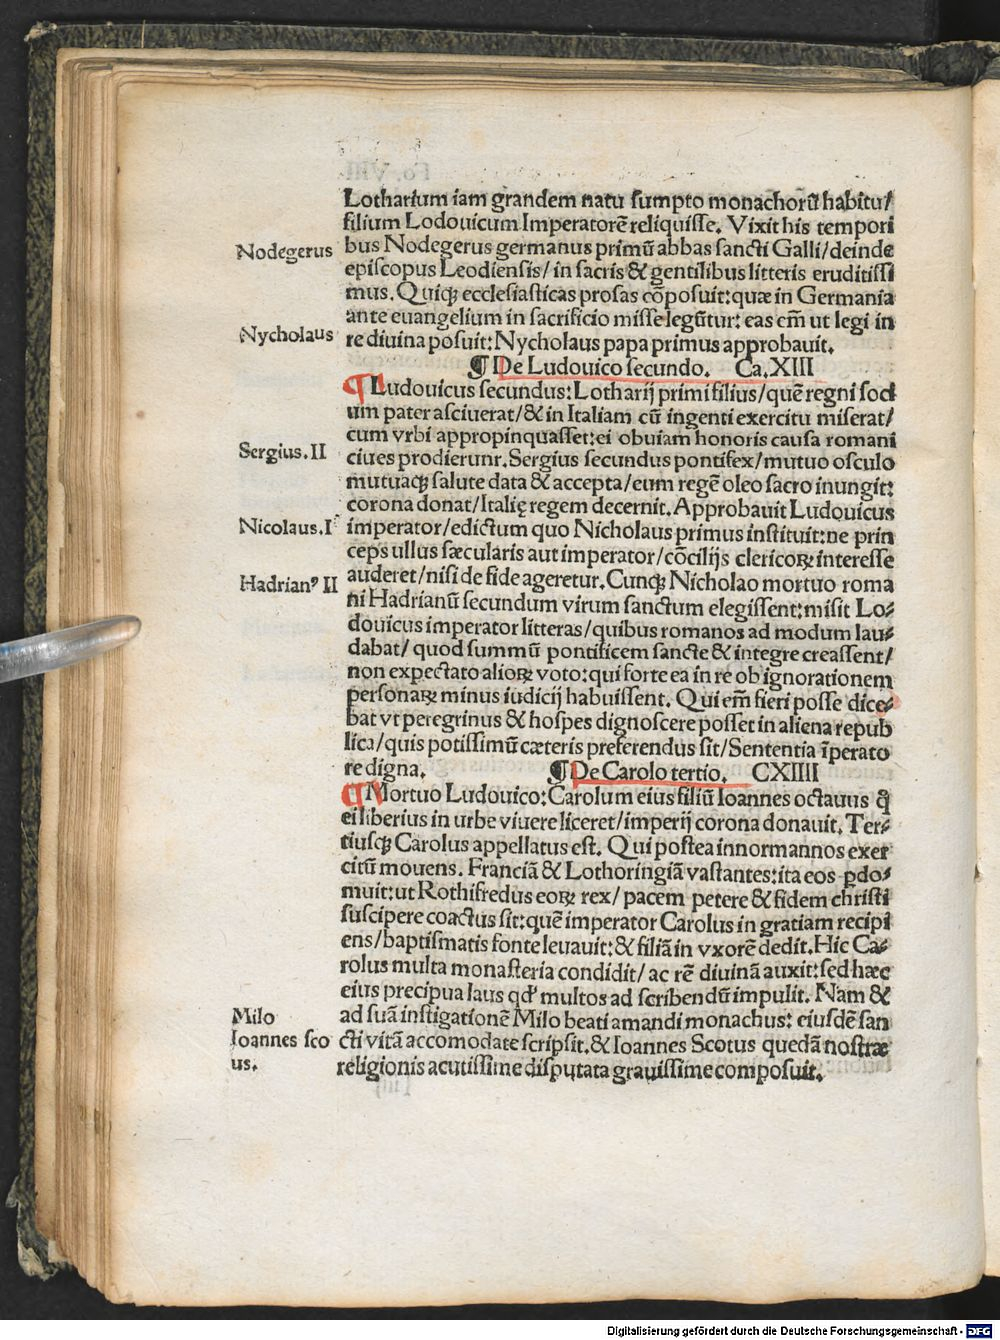 Lotharium iam grandem natu sumpto monachorū habitu/
filium Lodouicum Imperatorē reliquisse. Vixit his tempori
Nodegerus
bus Nodegerus germanus primū abbas sancti Galli/deinde
episcopus Leodiensis/ in sacris & gentilibus litteris eruditissi
mus. Quiqꝫ ecclesiasticas prosas cōposuit:quæ in Germania
ante euangelium in sacrificio misse legūtur: eas cm̄ ut legi in
Nycholaus
re diuina posuit: Nycholaus papa primus approbauit.
¶ De Ludouico secundo. Ca.XIII
¶ Ludouicus secundus: Lotharij primi filius/quē regni soci
um pater asciuerat/& in Italiam cū ingenti exercitu miserat/
cum vrbi appropinquasset:ei obuiam honoris causa romani
Sergius.II
ciues prodierunr. Sergius secundus pontifex/mutuo osculo
mutuaqꝫ salute data & accepta/eum regē oleo sacro inungit:
corona donat/Italię regem decernit. Approbauit Ludouicus
Nicolaus.I
imperator/edictum quo Nicholaus primus instituit:ne prin
ceps ullus sæcularis aut imperator/cōcilijs clericoꝝ interesse
Hadrianꝰ II
auderet/nisi de fide ageretur. Cunqꝫ Nicholao mortuo roma
ni Hadrianū secundum virum sanctum elegissent:misit Lo⸗
douicus imperator litteras/quibus romanos ad modum lau⸗
dabat/ quod summū pontificem sancte & integre creassent/
non expectato alioꝝ voto:qui forte ea in re ob ignorationem
personaꝝ minus iudicij habuissent. Qui em̄ fieri posse dice⸗
bat vt peregrinus & hospes dignoscere posset in aliena repub
lica/quis potissimū cæteris preferendus sit/Sententia īperato
re digna. ¶ De Carolo tertio. CXIIII
¶ Mortuo Ludouico: Carolum eius filiū Ioannes octauus q̄
ei liberius in urbe viuere liceret/imperij corona donauit. Ter⸗
tiusqꝫ Carolus appellatus est. Qui postea in normannos exer
citū mouens. Franciā & Lothoringiā vastantes:ita eos ꝑdo⸗
muit:ut Rothifredus eoꝝ rex/ pacem petere & fidem christi
suscipere coactus sit:quē imperator Carolus in gratiam recipi
ens/baptismatis fonte leuauit:& filiā in vxorē dedit. Hic Ca⸗
rolus multa monasteria condidit/ ac rē diuinā auxit:sed hæc
eius precipua laus qd' multos ad scribendū impulit. Nam &
Milo
ad suā instigationē Milo beati amandi monachus: eiusdē san
Ioannes sco
cti vitā accomodate scripsit. & Ioannes Scotus quedā nostræ
us.
religionis acutissime disputata grauissime composuit.
Digitalisierung gefördert durch die Deutsche Forschungsgemeinschaft - DFG